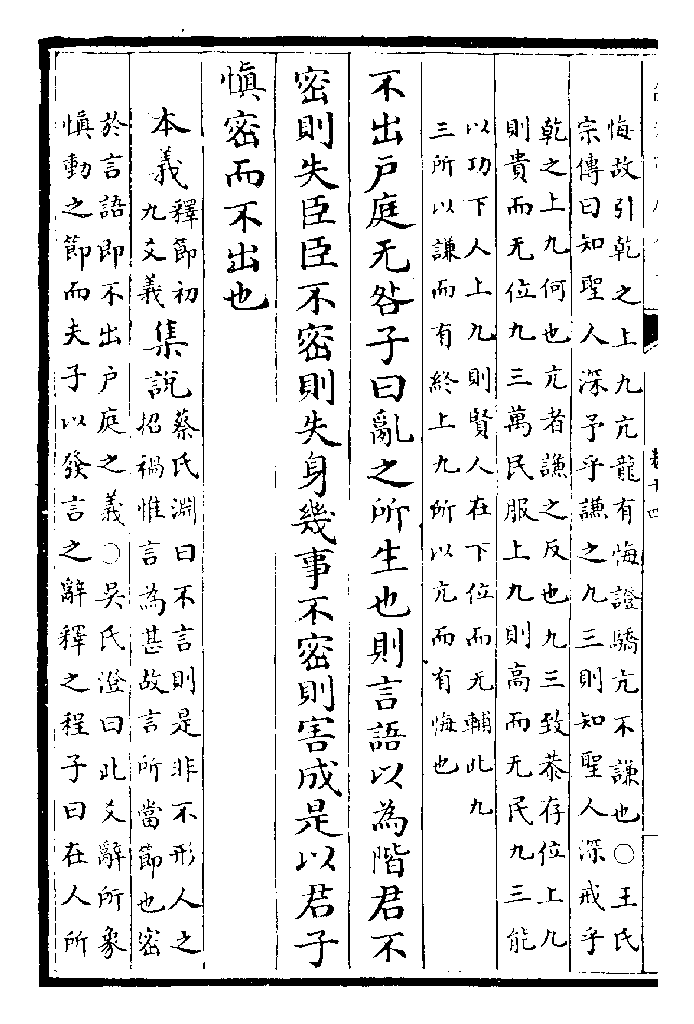 悔故引乾之上九亢龍有悔證驕亢不謙也○王氏
宗傳曰知聖人深予乎謙之九三則知聖人深戒乎
乾之上九何也亢者謙之反也九三致恭存位上九
則貴而无位九三萬民服上九則高而无民九三能
以功下人上九則賢人在下位而无輔此九
三所以謙而有終上九所以亢而有悔也
不出戶庭无咎子曰亂之所生也則言語以為階君不
密則失臣臣不密則失身幾事不密則害成是以君子
慎密而不出也
本義釋節初九爻義集說蔡氏淵曰不言則是非不形人之
招禍惟言為甚故言所當節也密
於言語即不出戶庭之義○吳氏澄曰此爻辭所象
慎動之節而夫子以發言之辭釋之程子曰在人所
卷十四